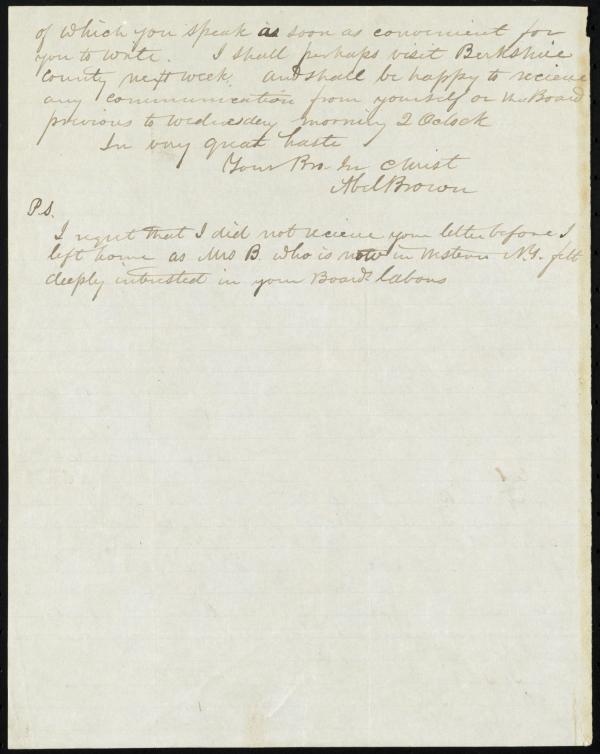 of which you speak as soon as convenient for
you to write. I shall perhaps visit Berkshire
County next week. and shall be happy to recieve
any communication from yourself or the Board
previous to Wednesday morning 2 Oclock
In very great haste
Your Bro. In Christ
Abel Brown
P.s.
I regret that I did not recieve your letter before I
left home as Mrs B. who is now in Western N.Y. felt
deeply interested in your Boards labors